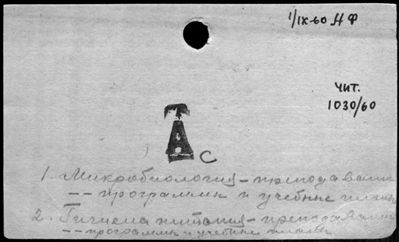 1/IX-60 НФ
ЧИТ.
1030/60
А
С
1. Микробиология - преподавание
-- программы и учебные планы
2. Гигиена питания - преподавание
-- программы и учебные планы